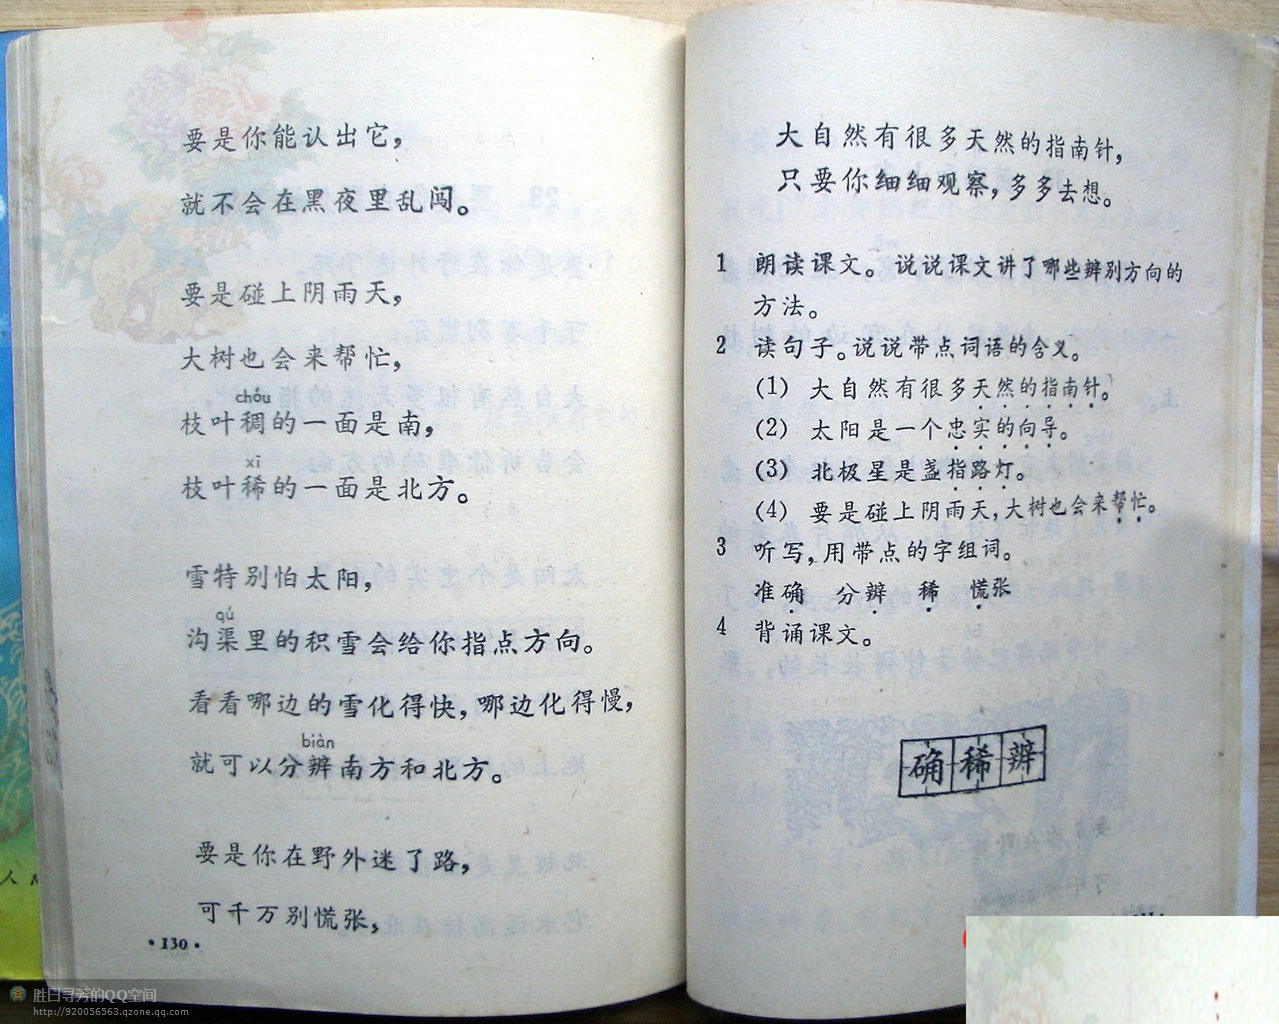 要是你能认出它，
就不会在黑夜里乱闯。
要是碰上阴雨天，
大树也会来帮忙，
chóu
枝叶稠的一面是南，
xī
枝叶稀的一面是北方。
雪特别怕太阳，
qú
沟渠里的积雪会给你指点方向。
看看哪边的雪化得快，哪边化得慢，
biàn
就可以分辨南方和北方。
要是你在野外迷了路，
可千万别慌张，
·130·
大自然有很多天然的指南针，
只要你细细观察，多多去想。
1 朗读课文。说说课文讲了哪些辨别方向的
方法。
2 读句子。说说带点词语的含义。
(1) 大自然有很多天然的指南针。
(2) 太阳是一个忠实的向导。
(3) 北极星是盏指路灯。
(4) 要是碰上阴雨天，大树也会来帮忙。
3 听写，用带点的字组词。
准确 分辨 稀 慌张
4 背诵课文。
确稀辨
胜日寻芳的QQ空间
http://920056563.qzone.qq.com